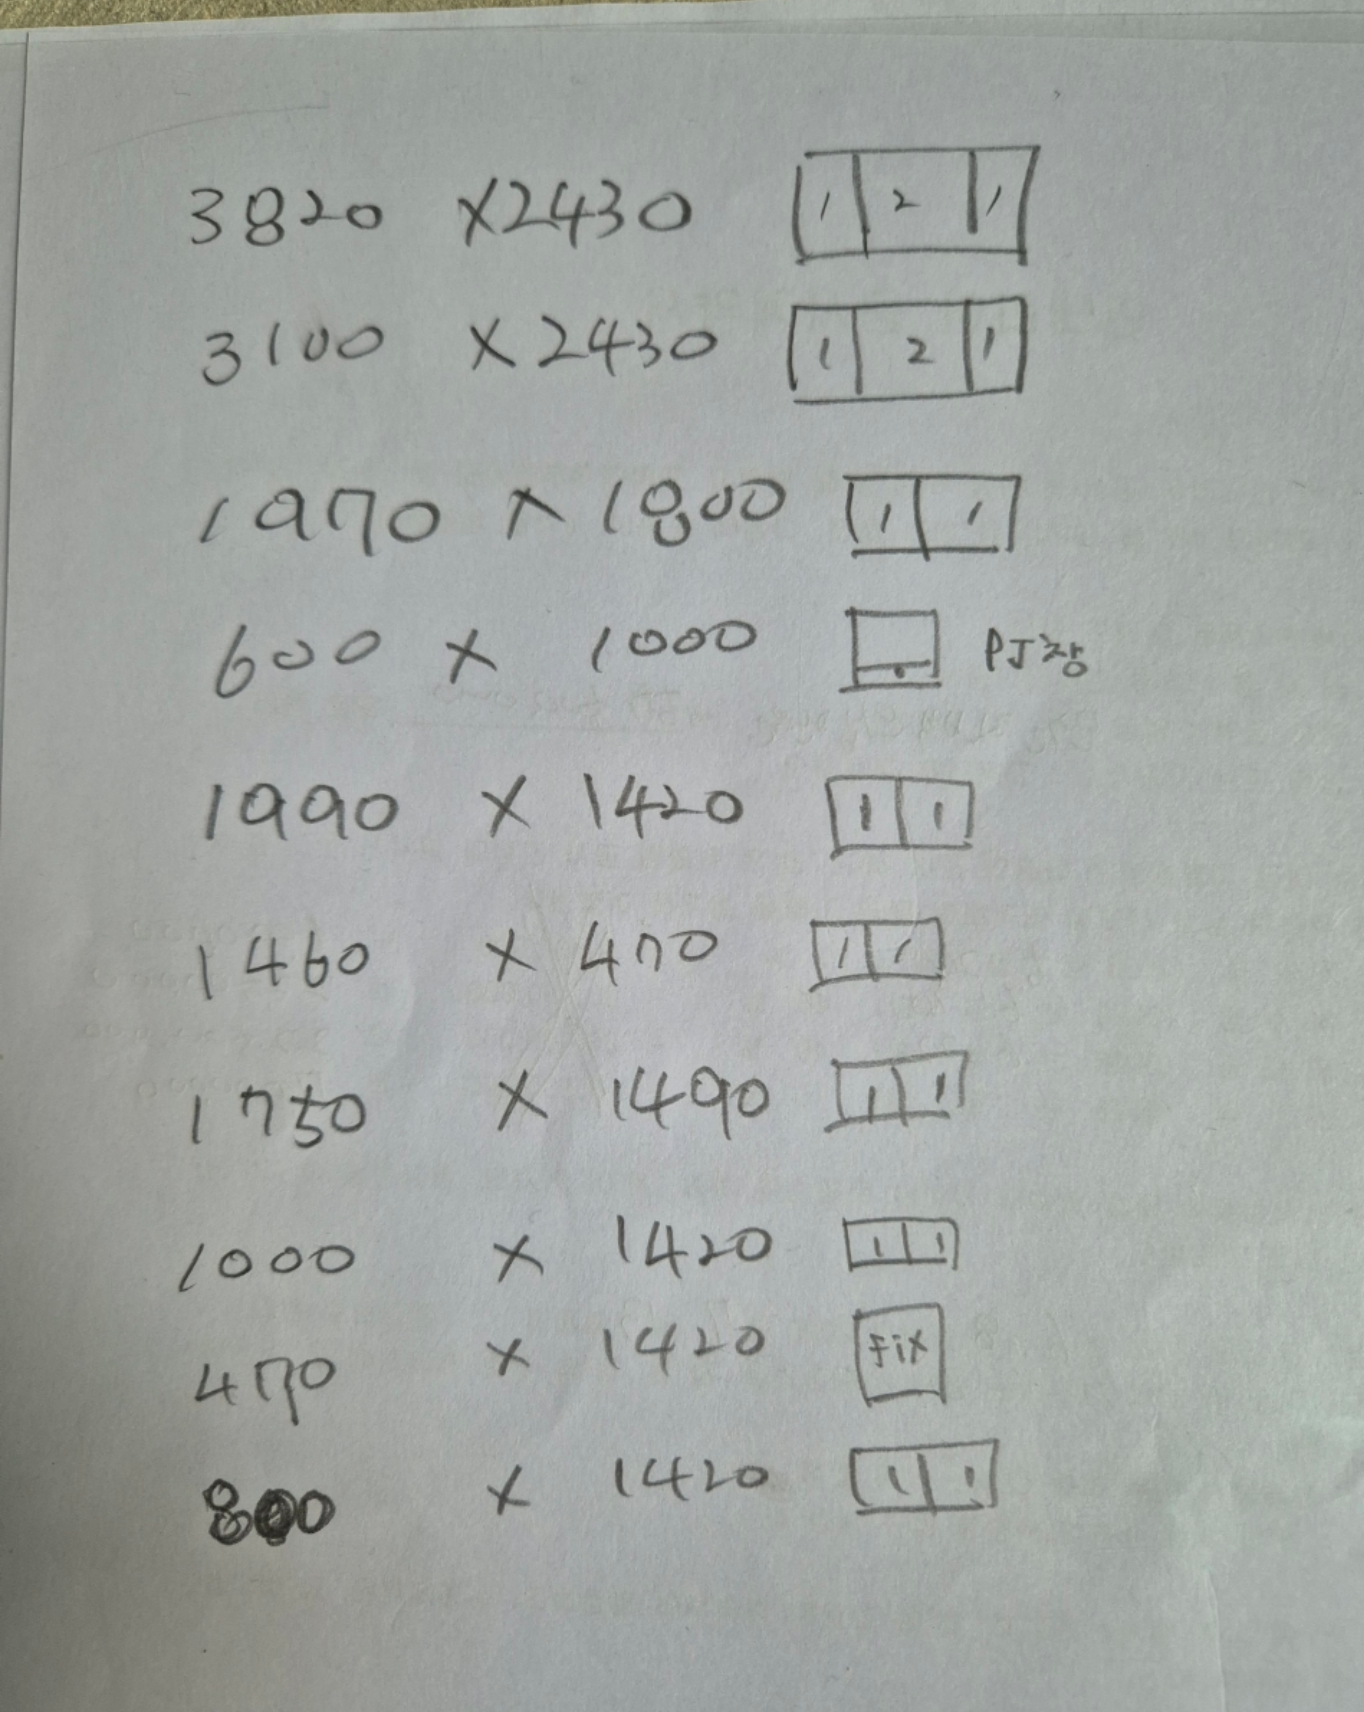 3820 X2430 1 2 1
3100 X 2430 1 2 1
1970 X 1800 1 1
600 X 1000 PJ창
1990 X 1420 1 1
1460 X 470 1 1
1750 X 1490 1 1
1000 X 1420 1 1
470 X 1420 Fix
800 X 1420 1 1